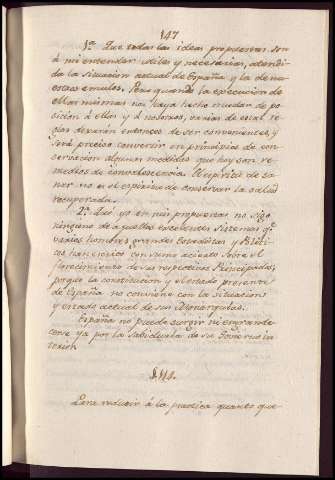 147
1ª. Que todas las ideas propuestas son
á mi entender utiles y necesarias, atendi-
da la situacion actual de España y la de nu-
estros emulos. Pero quando la execucion de
ellas mismas nos haya hecho mudar de po-
sicion á ellos y á nosotros, varias de estas re-
glas dexarán entonces de ser convenientes, y
será preciso convertir en principios de con-
servacion algunas medidas que hoy son re-
medios de convalescencia. El espiritu de sa-
nar no es el espiritu de conservar la salud
recuperada.
2ª. Qué yo en mis propuestas no sigo
ninguno de aquellos excelentes sistemas qᵉ
varios hombres grandes Estadistas y Politi-
cos han escrito con sumo acierto sobre el
florecimiento de sus respectivos Principados;
porque la constitucion y el estado presente
de España no conviene con la situacion
y estado actual de sus Monarquias.
España no puede surgir ni engrande-
cerse ya por la sabiduria de su Govierno in-
terior
§.110.
Para reducir á la practica quanto que-